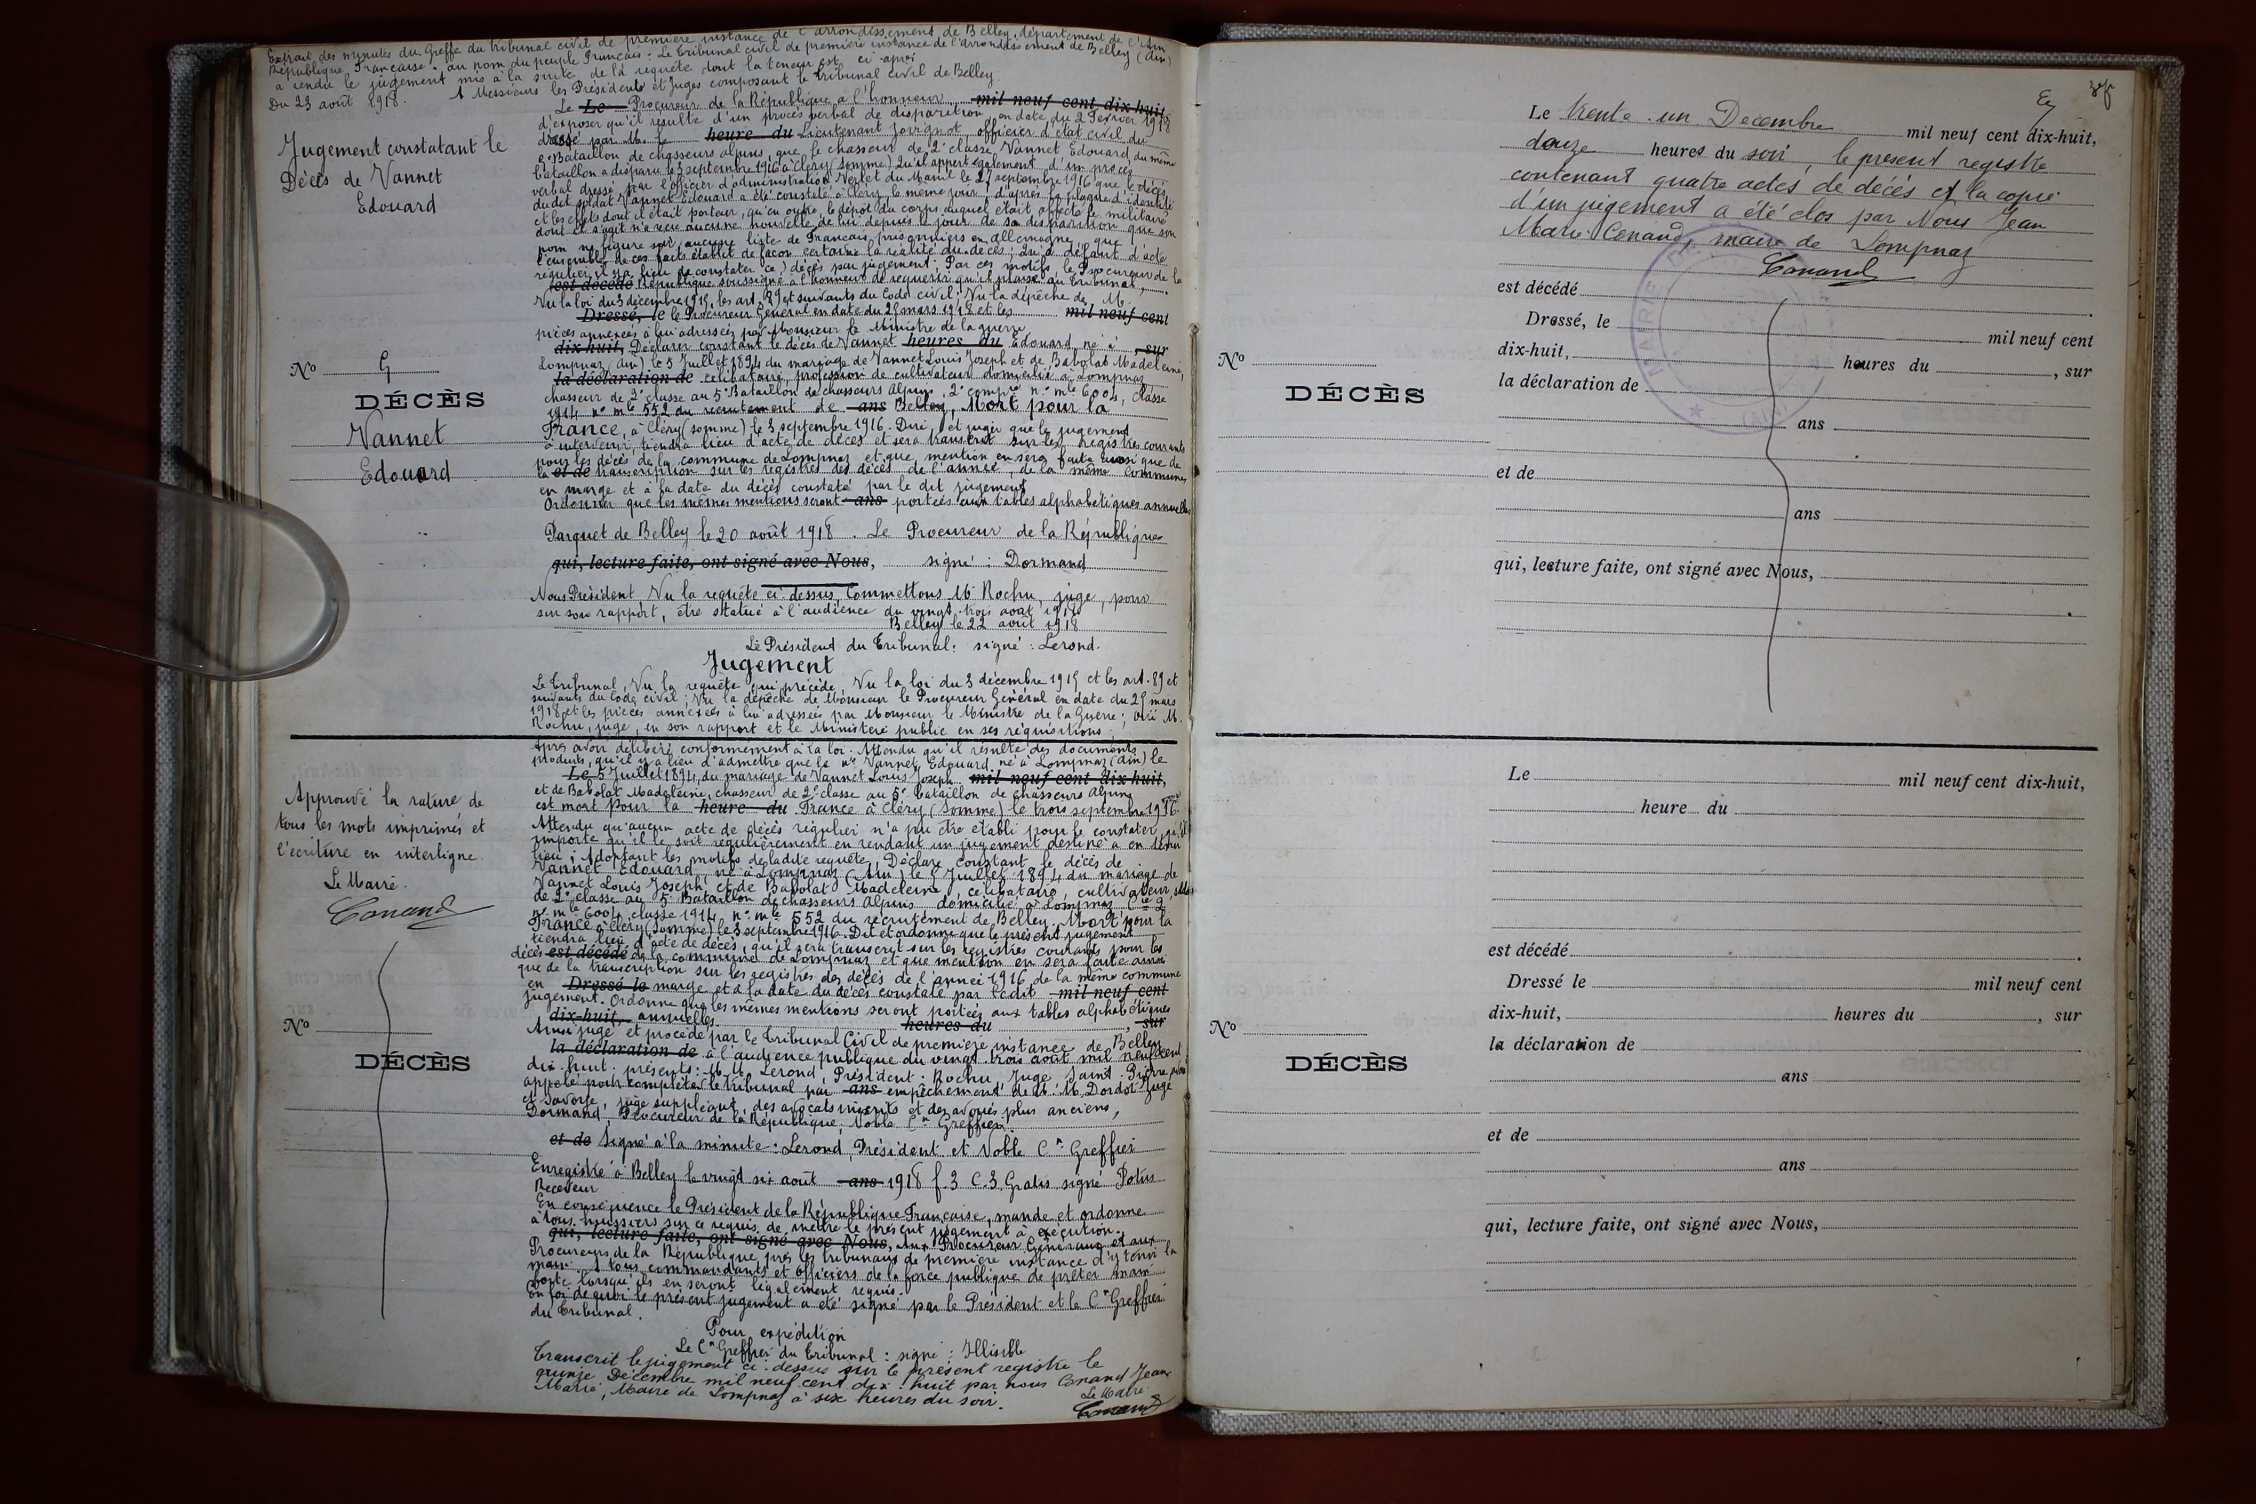 Extrait des minutes du Greffe du tribunal civil de première instance de l'arrondissement de Belley, département de l'Ain
République Française. au nom du peuple Français: Le tribunal civil de première instance de l'arrondissement de Belley (Ain)
a rendu le jugement mis à la suite de la requête dont la teneur est ci-après
Du 23 août 1918. A Messieurs les Présidents et Juges composant le tribunal civil de Belley
Jugement constatant le
Décès de Vannet
Edouard
Le Le Procureur de la République a l'honneur mil neuf cent dix-huit
d'exposer qu'il résulte d'un procès verbal de disparition en date du 2 Février 1918
dressé par M. le heure du Lieutenant Jovignot, officier d'état civil du
Bataillon de chasseurs alpins, que le chasseur de 2e classe Vannet Edouard du même
bataillon a disparu le 3 septembre 1916 à Cléry (somme) Qu'il appert également d'un procès
verbal dressé par l'officier d'administration Verlet du Manil le 27 septembre 1916 que le décès
du dit soldat Vannet Edouard a été constaté à Cléry le même jour, d'après la plaque d'identité
et les effets dont il était porteur, qu'en outre, le dépôt du corps auquel était affecté le militaire
dont il s'agit n'a reçu aucune nouvelle de lui depuis le jour de sa disparition que son
nom ne figure sur aucune liste de Français prisonniers en Allemagne, que
l'ensemble de ces faits établit de façon certaine la réalité du décès; Qu'à défaut d'acte
régulier, il y a lieu de constater ce décès par jugement: Par ces motifs le Procureur de la
est décédé République soussigné a l'honneur de requérir qu'il plaise au tribunal,
Vu la loi du 3 décembre 1915, les art. 89 et suivants du Code civil; Vu la dépêche de M.
Dressé, le le Procureur Général en date du 25 mars 1918 et les mil neuf cent
pièces annexées à lui adressées par Monsieur le Ministre de la guerre
dix-huit, Déclarer constant le décès de Vannet heures du Edouard, né à , sur
Lompnaz (Ain) le 5 Juillet 1894 du mariage de Vannet Louis Joseph et de Babolat Madeleine,
la déclaration de célibataire, profession de cultivateur domicilié à Lompnaz
chasseur de 2e classe au 5e Bataillon de chasseurs Alpins, 2e compie no mle 6004, classe
1914 no mle 552 du recrutement de ans Belley, Mort pour la
France, à Cléry (somme) le 3 septembre 1916. Dire et juger que le jugement
à intervenir, tiendra lieu d'acte de décès et sera transcrit sur les registres courants
pour les décès de la commune de Lompnaz et que mention en sera faite ainsi que de
la et de transcription sur les registres des décès de l'année de la même commune,
en marge et à la date du décès constaté par le dit jugement
Ordonner que les mêmes mentions seront ans portées aux tables alphabétiques annuelles
Parquet de Belley le 20 août 1918. Le Procureur de la République
qui, lecture faite, ont signé avec Nous, signé: Dormand
Nous Président Vu la requête ci-dessus, Commettons Mr Rochu, juge, pour
sur son rapport, être statué à l'audience du vingt-trois août 1918
Belley le 22 août 1918
Le Président du Tribunal: signé: Lerond.
Jugement
Le Tribunal, Vu la requête qui précède, Vu la loi du 3 décembre 1915 et les art. 89 et
suivants du Code civil; Vu la dépêche de Monsieur le Procureur Général en date du 25 mars
1918 et les pièces annexées à lui adressées par Monsieur le Ministre de la Guerre; Ouï M.
Rochu, juge, en son rapport et le Ministère public en ses réquisitions;
Après avoir délibéré conformément à la loi. Attendu qu'il résulte des documents
produits, qu'il y a lieu d'admettre que le né Vannet Edouard, né à Lompnaz (Ain) le
Le 5 Juillet 1894, du mariage de Vannet Louis Joseph mil neuf cent dix-huit,
et de Babolat Madeleine, chasseur de 2e classe au 5e bataillon de chasseurs Alpins
est mort Pour la heure du France à Cléry (Somme) le trois septembre 1916.
Attendu qu'aucun acte de décès régulier n'a pu être établi pour le constater, qu'il
importe qu'il le soit régulièrement en rendant un jugement destiné à en tenir
lieu; Adoptant les motifs de ladite requête, Déclare constant le décès de
Vannet Edouard, né à Lompnaz (Ain) le 5 Juillet 1894 du mariage de
Vannet Louis Joseph et de Babolat Madeleine, célibataire, cultivateur, soldat
de 2e classe au 5e Bataillon de chasseurs Alpins domicilié à Lompnaz Cie 2
no mle 6004 classe 1914 no mle 552 du recrutement de Belley. Mort pour la
France à Cléry (Somme) le 3 septembre 1916. Dit et ordonne que le présent jugement
tiendra lieu d'acte de décès, qu'il sera transcrit sur les registres courants pour les
décès est décédé de la commune de Lompnaz et que mention en sera faite ainsi
que de la transcription sur les registres des décès de l'année 1916 de la même commune
en Dressé le marge et à la date du décès constaté par ledit mil neuf cent
jugement. Ordonne que les mêmes mentions seront portées aux tables alphabétiques
dix-huit, annuelles. heures du , sur
Ainsi jugé et procédé par le Tribunal Civil de première instance de Belley
la déclaration de à l'audience publique du vingt trois août mil neuf cent
dix-huit. présents: M.M. Lerond, Président; Rochu Juge, Saint-Pierre, avoué
appelé pour compléter le tribunal par ans empêchement de M. Dordor Juge
et Savoye, juge suppléant, des avocats inscrits et des avoués plus anciens,
Dormand, Procureur de la République, Noble Cis Greffier.
et de Signé à la minute: Lerond, Président et Noble Cis Greffier
Enregistré à Belley le vingt six août ans 1918 f 3 C.3. Gratis signé Potus
Receveur
En conséquence le Président de la République Française, mande et ordonne
à tous huissiers sur ce requis de mettre le présent jugement à exécution.
qui, lecture faite, ont signé avec Nous, Aux Procureurs Généraux et aux
Procureurs de la République près les tribunaux de première instance d'y tenir la
main. A tous commandants et officiers de la force publique de prêter main
forte lorsqu'ils en seront légalement requis.
En foi de quoi le présent jugement a été signé par le Président et le Cis Greffier
du Tribunal.
Pour expédition
Le Cis Greffier du Tribunal: signé: Illisible
Transcrit le jugement ci-dessus sur le présent registre le
quinze Décembre mil neuf cent dix-huit par nous Conand Jean
Marie, Maire de Lompnaz à six heures du soir.
Le Maire
Conand
No 5
DÉCÈS
Vannet
Edouard
Approuvé la rature de
tous les mots imprimés et
l'écriture en interligne.
Le Maire.
Conand
No
DÉCÈS
Le trente-un Décembre mil neuf cent dix-huit,
douze heures du soir, le présent registre
contenant quatre actes de décès et la copie
d'un jugement a été clos par Nous Jean
Marie Conand, maire de Lompnaz
Conand
MAIRIE
(AIN)
est décédé
Dressé, le mil neuf cent
dix-huit, heures du , sur
la déclaration de
ans
et de
ans
qui, lecture faite, ont signé avec Nous,
No
DÉCÈS
Le mil neuf cent dix-huit,
heure du
est décédé
Dressé le mil neuf cent
dix-huit, heures du , sur
la déclaration de
ans
et de
ans
qui, lecture faite, ont signé avec Nous,
No
DÉCÈS